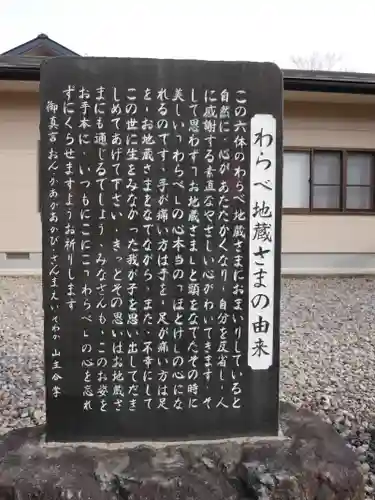 わらべ地蔵さまの由来
この六体のわらべ地蔵さまにおまいりしていると
自然に、心があたたかくなり、自分を反省し、人
に感謝する素直なやさしい心がわいてきます。そ
して思わず「お地蔵さま」と頭をなでたその時に
美しい「わらべ」の心本当の「ほとけ」の心にな
れるのです。手が痛い方は手を、足が痛い方は足
を、お地蔵さまをなでながら、また、不幸にして
この世に生をみなかった我が子を思い出してだき
しめてあげて下さい きっとその思いはお地蔵さ
まにも通じるでしょう みなさんも、このお姿を
お手本に、いつもにこにこ「わらべ」の心を忘れ
ずにくらせますようお祈りします
御真言 おん・かあかあかび・さんまえい・そわか 山主合掌